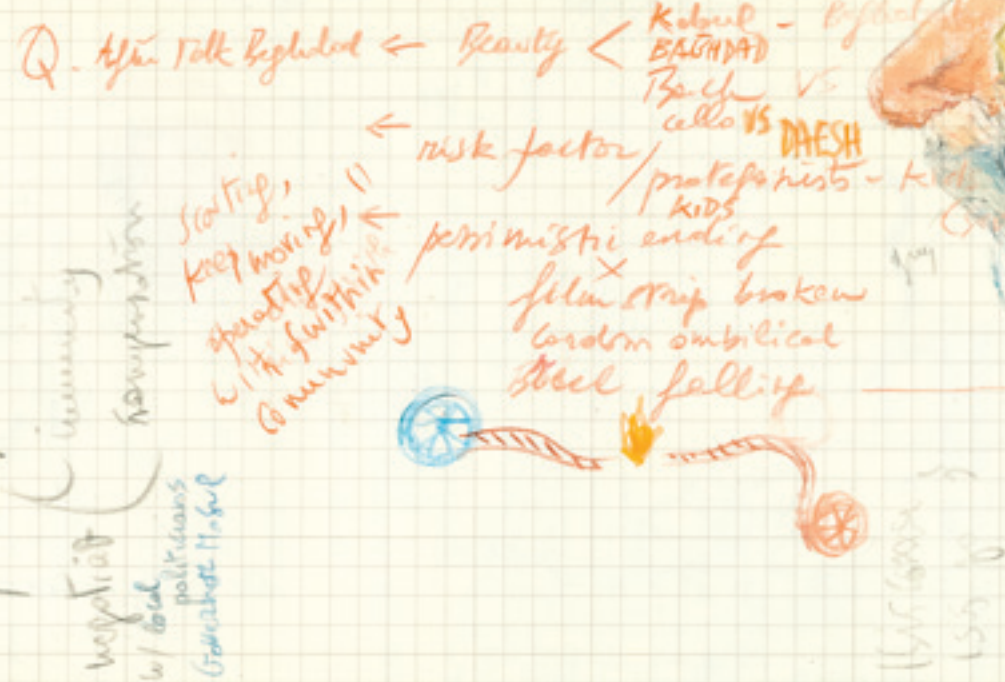 Q. After Talk Baghdad ← Beauty < Kaboul -
BAGHDAD
Bach VS
cello VS DAESH
← risk factor / protagonists -
KIDS
← pessimistic ending
film strip broken
cordon ombilical
falling
scouting,
keep moving,
operating
with / within
community
immunity
negotiate
w/ local
politicians
Governor Mosul